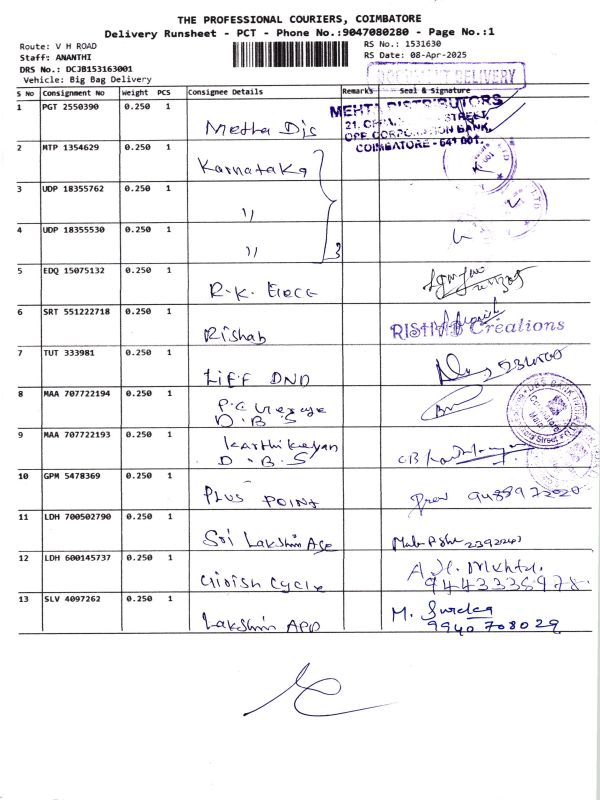 THE PROFESSIONAL COURIERS, COIMBATORE
Delivery Runsheet - PCT - Phone No.:9047080280 - Page No.:1
Route: V H ROAD
RS No.: 1531630
Staff: ANANTHI
RS Date: 08-Apr-2025
DRS No.: DCJB153163001
Vehicle: Big Bag Delivery
DOCUMENT DELIVERY
S No Consignment No Weight PCS Consignee Details Remarks Seal & Signature
1 PGT 2550390 0.250 1 Metha Dis
MEHTA DISTRIBUTORS
21, STREET,
OPP. CORPORATION BANK,
COIMBATORE - 641 001.
2 MTP 1354629 0.250 1 Karnataka
3 UDP 18355762 0.250 1 "
4 UDP 18355530 0.250 1 " 3
5 EDQ 15075132 0.250 1 R.K.
6 SRT 551222718 0.250 1 Rishab
RISHAB Creations
7 TUT 333981 0.250 1 LIFF DND
8 MAA 707722194 0.250 1 P.C
D.B.S
9 MAA 707722193 0.250 1 Karthikeyan
D.B.S
10 GPM 5478369 0.250 1 PLUS POINT
11 LDH 700502790 0.250 1 Sri Lakshmi Age
12 LDH 600145737 0.250 1 Girish Cycle
13 SLV 4097262 0.250 1 Lakshmi APP M.
9940 708029